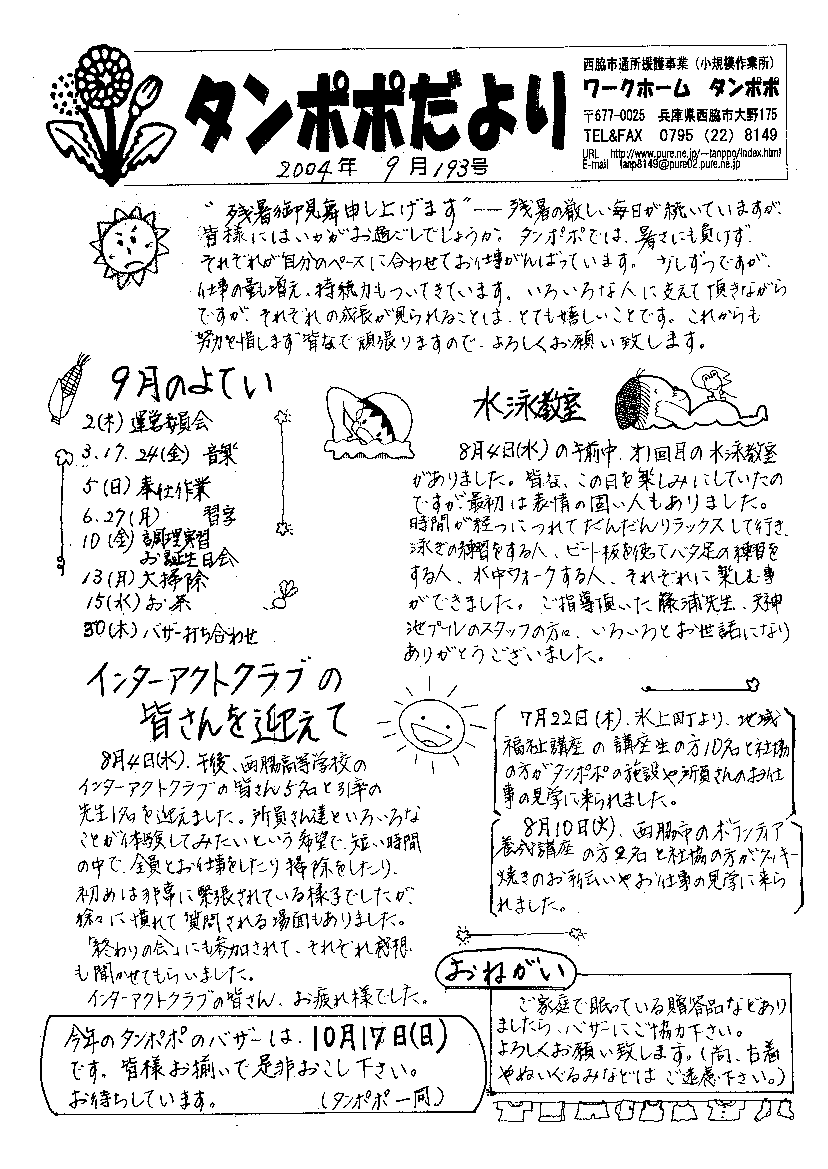 タンポポだより
2004年 9月193号
西脇市通所援護事業（小規模作業所）
ワークホーム タンポポ
〒677-0025 兵庫県西脇市大野175
TEL&FAX 0795（22）8149
URL http://www.pure.ne.jp/~tanppo/index.html
E-mail tanp8149@pure02.pure.ne.jp
"残暑御見舞申し上げます"――残暑の厳しい毎日が続いていますが、
皆様にはいかがお過ごしでしょうか。タンポポでは、暑さにも負けず、
それぞれが自分のペースに合わせてお仕事がんばっています。少しずつですが、
仕事の量も増え、持続力もついてきています。いろいろな人に支えて頂きながら
ですが、それぞれの成長が見られることは、とても嬉しいことです。これからも
努力を惜します皆なで頑張りますので、よろしくお願い致します。
9月のよてい
2(木) 運営委員会
3.17.24(金) 音楽
5(日) 奉仕作業
6.27(月) 習字
10(金) 調理実習
お誕生日会
13(月) 大掃除
15(水) お茶
30(木) バザー打ち合わせ
水泳教室
8月4日(水)の午前中、オ1回目の水泳教室
がありました。皆な、この日を楽しみにしていたの
ですが最初は表情の固い人もありました。
時間が経つにつれてだんだんリラックスして行き、
泳ぎの練習をする人、ビート板を使ってバタ足の練習を
する人、水中ウォークする人、それぞれに楽しむ事
ができました。ご指導頂いた藤浦先生、天神
池プールのスタッフの方々、いろいろとお世話になり
ありがとうございました。
インターアクトクラブの
皆さんを迎えて
8月4日(水)、午後、西脇高等学校の
インターアクトクラブの皆さん5名と引率の
先生1名を迎えました。所員さん達といろいろな
ことが体験してみたいという希望で、短い時間
の中で、全員とお仕事をしたり掃除をしたり、
初めは非常に緊張されている様子でしたが、
徐々に慣れて質問される場面もありました。
「終わりの会」にも参加されて、それぞれ感想
も聞かせてもらいました。
インターアクトクラブの皆さん、お疲れ様でした。
7月22日(木)、氷上町より、地域
福祉講座の講座生の方10名と社協
の方がタンポポの施設や所員さんのお仕
事の見学に来られました。
8月10日(火)、西脇市のボランティア
養成講座の方2名と社協の方がクッキー
焼きのお手伝いやお仕事の見学に来ら
れました。
おねがい
ご家庭で眠っている贈答品などあり
ましたら、バザーにご協力下さい。
よろしくお願い致します。(尚、古着
やぬいぐるみなどはご遠慮下さい。)
今年のタンポポのバザーは、10月17日(日)
です。皆様お揃いで是非おこし下さい。
お待ちしています。 (タンポポ一同)